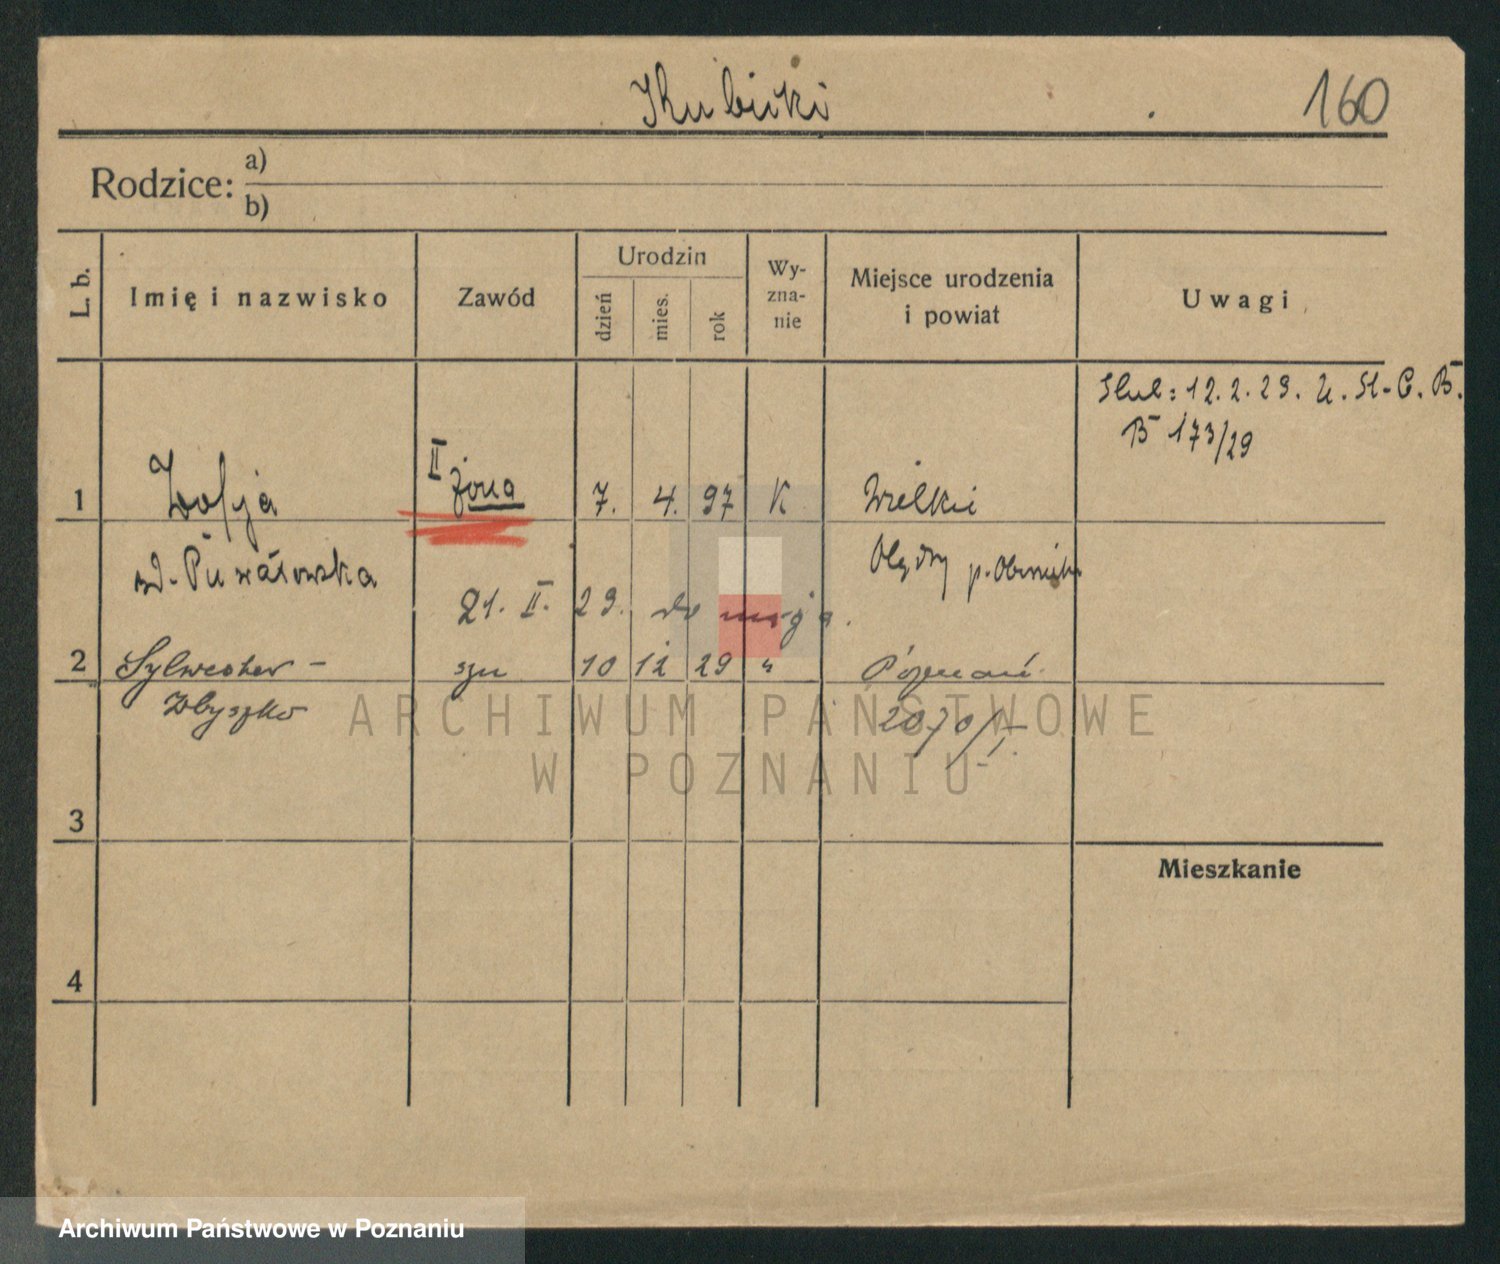 Kubicki
160
Rodzice: a)
b)
L. b.
Imię i nazwisko
Zawód
Urodzin
dzień
mies.
rok
Wy-
zna-
nie
Miejsce urodzenia
i powiat
Uwagi
Ślub: 12.2.29. U. St. C. B.
B 173/29
1 Zofja II żona 7. 4. 97 K Wielkie
21. II. 29. do męża.
2 Sylwester - syn 10 12 29 " Poznań
Zbyszko 2070/I
3
Mieszkanie
4
ARCHIWUM PAŃSTWOWE
W POZNANIU
Archiwum Państwowe w Poznaniu